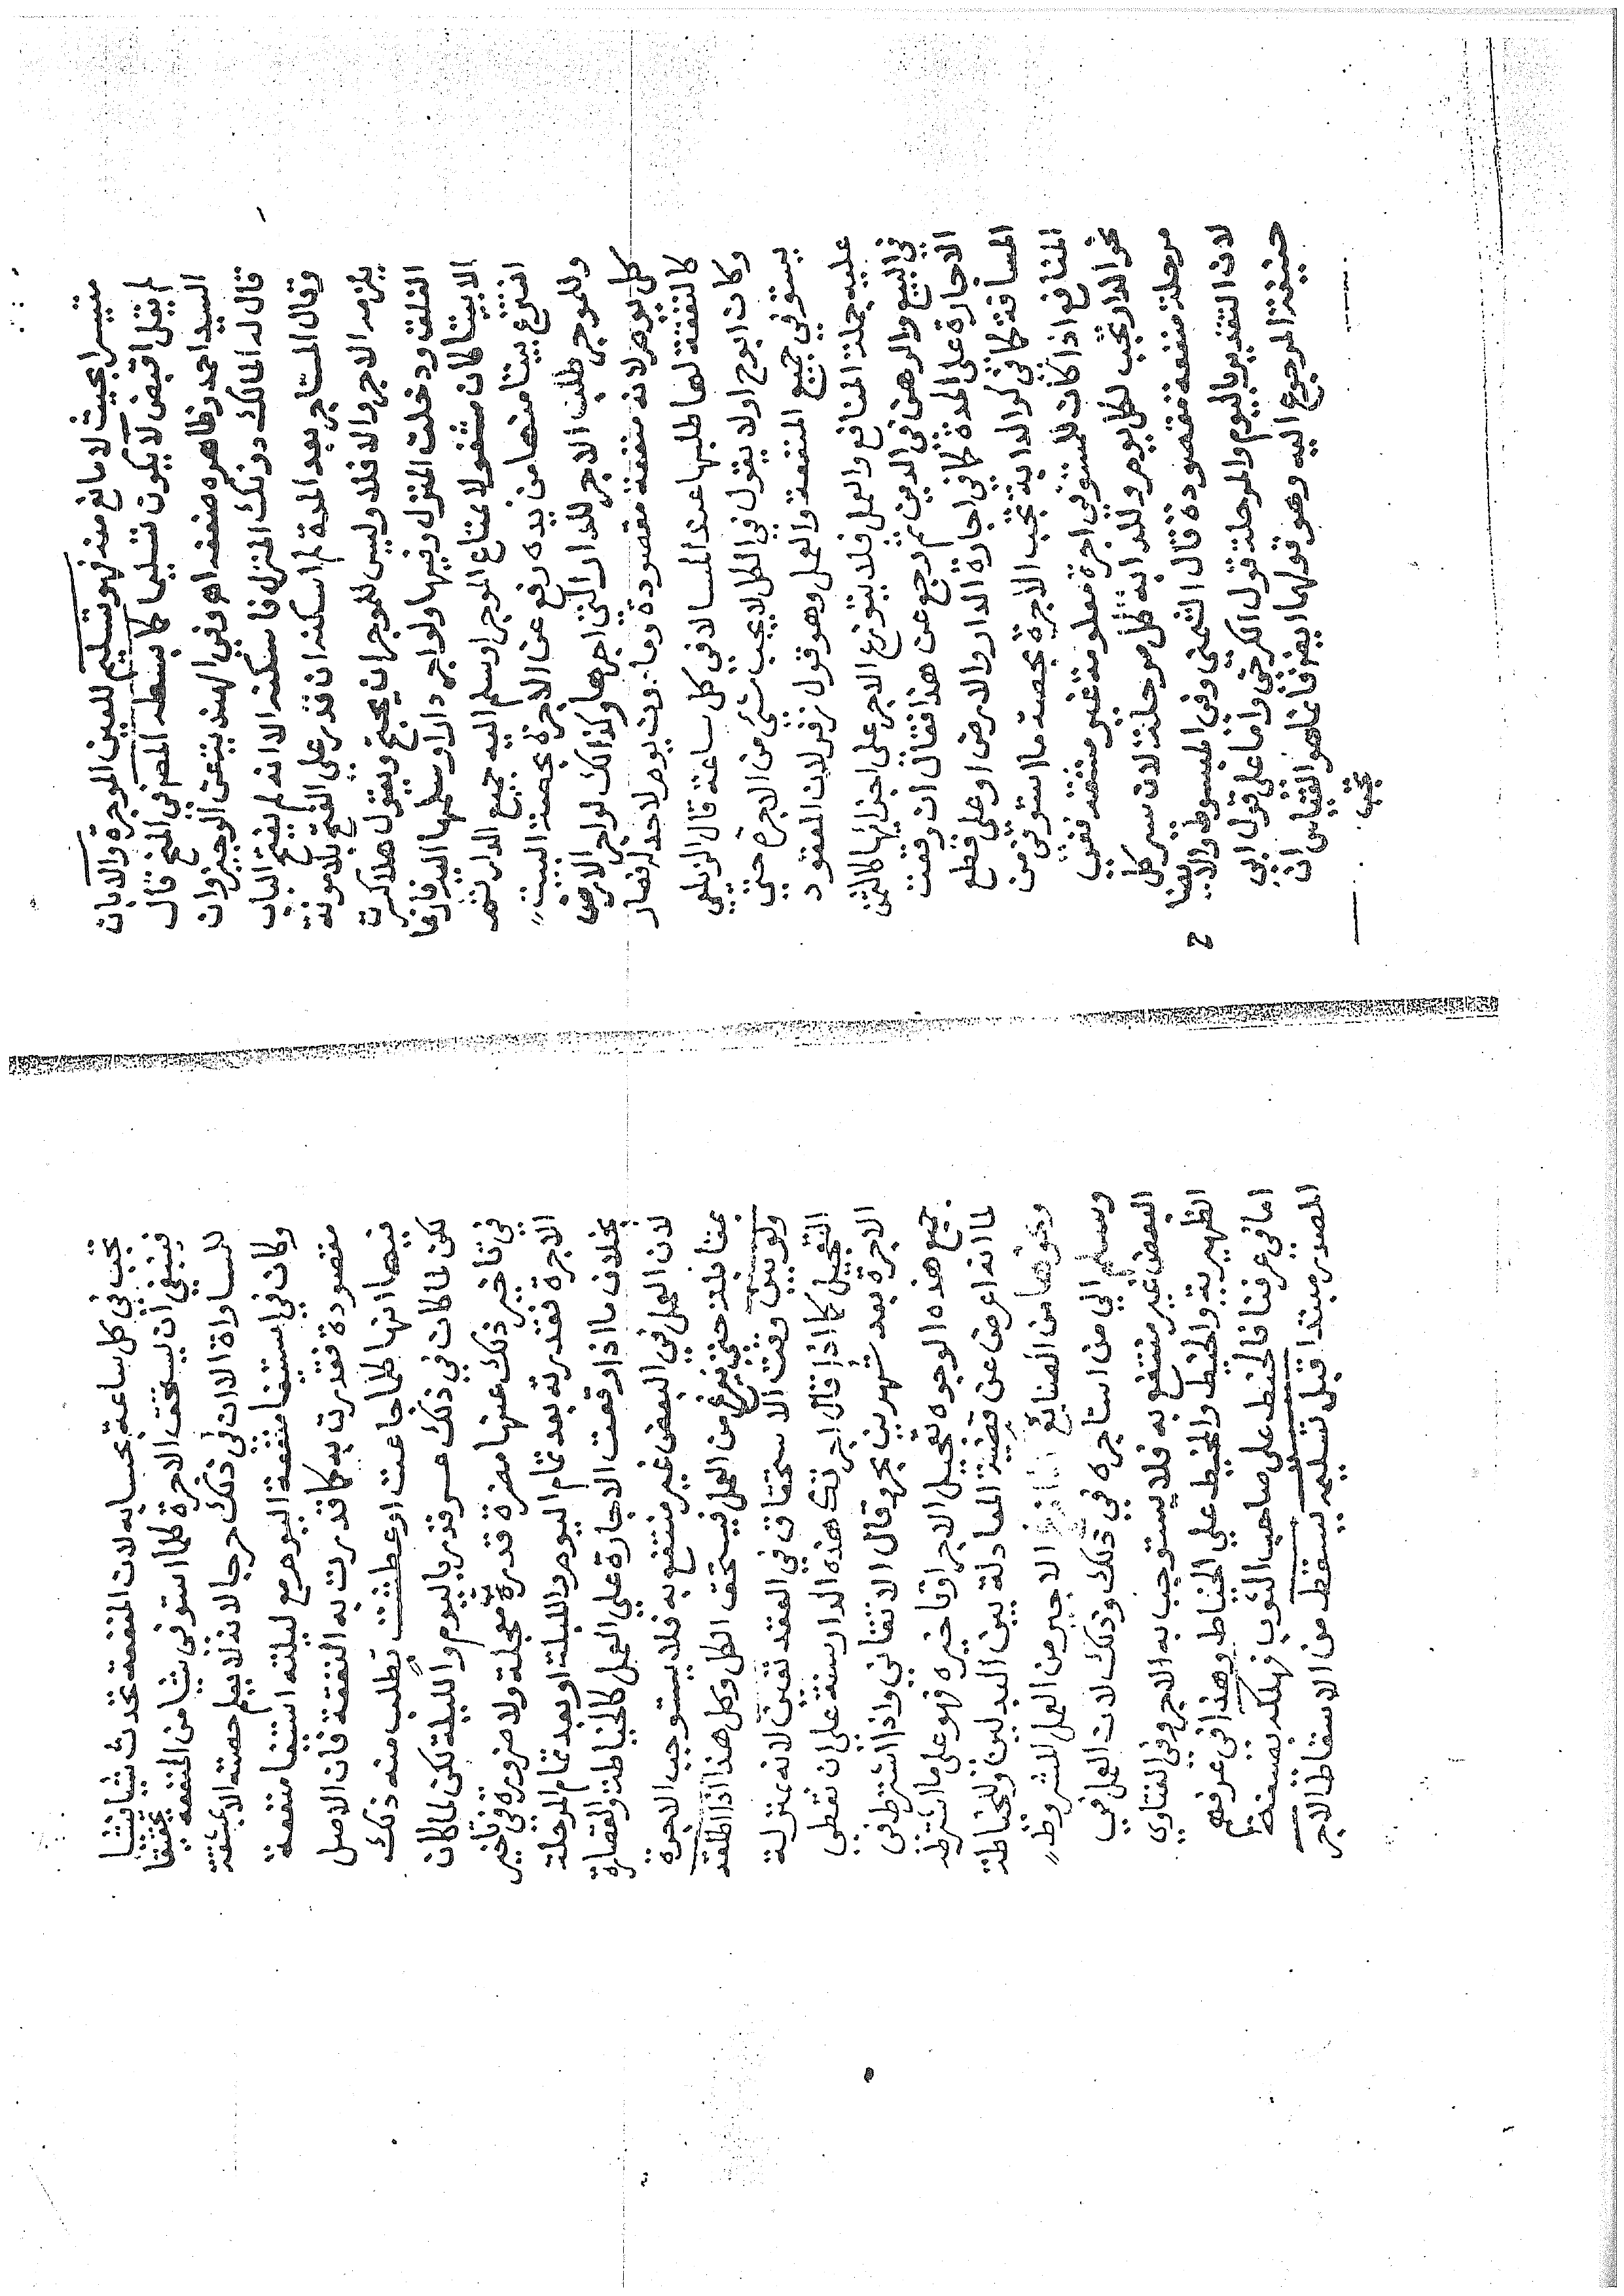 متيسرا بحيث لا مانع منه فهو تسليم للعين الموجرة والا بان
لم يقل اقبض لا يكون تسليما كما بسطه المصر في المنح قال
السيد احمد وظاهره ضعفه اهـ وفي الهندية عن الوجيز وان
قال له المالك دونك المنزل فاسكنه الا انه لم يفتح الباب
وقال المستاجر بعد المدة لم اسكنه ان قدر على الفتح بلا مونة
يلزمه الاجر والا فلا وليس للموجر ان يحتج ويقول هلا كسرت
الغلق ودخلت المنزل وفيها ولو اجر دارا وسلمها اليه فارغا
الا بيتا كان مشغولا بمتاع الموجر او سلم اليه جميع الدار ثم
انتزع بيتا منها من يده رفع عن الاجرة بحصة البيت
وللموجر طلب الاجر للدار التي اجرها وكذلك لو اجر الارض
كل يوم لانه منفعة مقصودة وما دون يوم لا حد له فصار
كالنفقة لها طلبها عند المسا لا في كل ساعة قال الزيلعي
وكان ابو ح اولا يقول في الكل لا يجب شئ من الاجرة حتى
يستوفي جميع المنفعة والعمل وهو قول زفر لان المعقود
عليه جملة المنافع والعمل فلا يتوزع الاجر على اجزائها كالثمن
في البيع والرهن في الدين ثم رجع عن هذا فقال ان وقعت
الاجارة على المدة كما في اجارة الدار والارض او على قطع
المسافة كما في كرا الدابة تجب الاجرة بحصة ما استوفى من
المنافع اذا كان للمستوفى اجرة معلومة غير مشقة ففي
نحو الدار تجب لكل يوم وللدابة لكل مرحلة لان سير كل
مرحلة منفعة مقصودة قال الشمني وفي المبسوط والايضا ح
لان التقدير باليوم والمرحلة قول الكرخي واما على قول ابي
حنيفة المرجوع اليه وهو قولهما ايضا فانما هو القياس ان
تجب
تجب في كل ساعة بحسابه لان المنفعة تحدث شيا فشيا
فينبغي ان يستحق الاجرة كلما استوفى شيا من المنفعة تحقيقا
للمساواة الا ان في ذلك حرجا لانه لا يعلم حصته الا بمشقة
وكان في استيفا منفعة اليوم مع ليلته استيفا منفعة
مقصودة فقدرت به كما قدرت به النفقة فان الاصل
فيها انها كلما جاعت او عطشت تطلب منه ذلك
لكن لما كان في ذلك عسر قدر باليوم والليلة لكن لما كان
في تاخير ذلك عنها مضرة قدره معجلة ولا ضرورة في تاخير
الاجرة فقدرته بعد تمام اليوم والليلة او بعد تمام المرحلة
بخلاف ما اذا وقعت الاجارة على العمل كالخياطة والقصارة
لان العمل في البعض غير منتفع به فلا يستوجب الاجرة
بمقابلته حتى يفرغ من العمل فيستحق الكل وكل هذا اذا اطلقه
ولو بين وقت الاستحقاق في العقد تعين لانه بمنزلة
التعجيل كما اذا قال اجرتك هذه الدار سنة على ان تعطي
الاجرة بعد شهرين بحر قال الاتقاني واذا اشترط في
جميع هذه الوجوه تعجيل الاجر او تاخيره فهو على ما اشترط
لما انه اعرض عن قضية المعادلة بين البدلين وللخياطة
ونحوها من الصنايع الاجير من العمل المشروط
وسلم الي من استاجره في ذلك وذلك لان العمل في
البعض غير منتفع به فلا يستوجب به الاجر وفي الفتاوى
الظهيرية والخيط والمخيط على الخياط وهذا في عرفهم
اما في عرفنا فالخيط على صاحب الثوب فهلكه بصنعه
المصدر مبتدا قبل تسليمه يسقط من الاسقاط الاجر